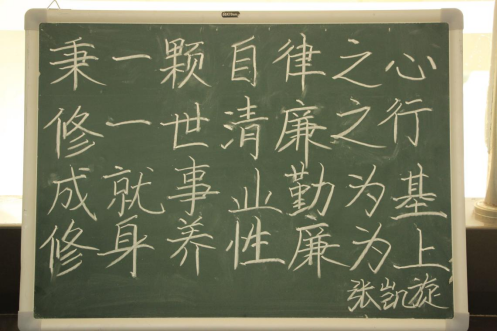 秉一颗自律之心
修一世清廉之行
成就事业勤为基
修身养性廉为上
张凯旋